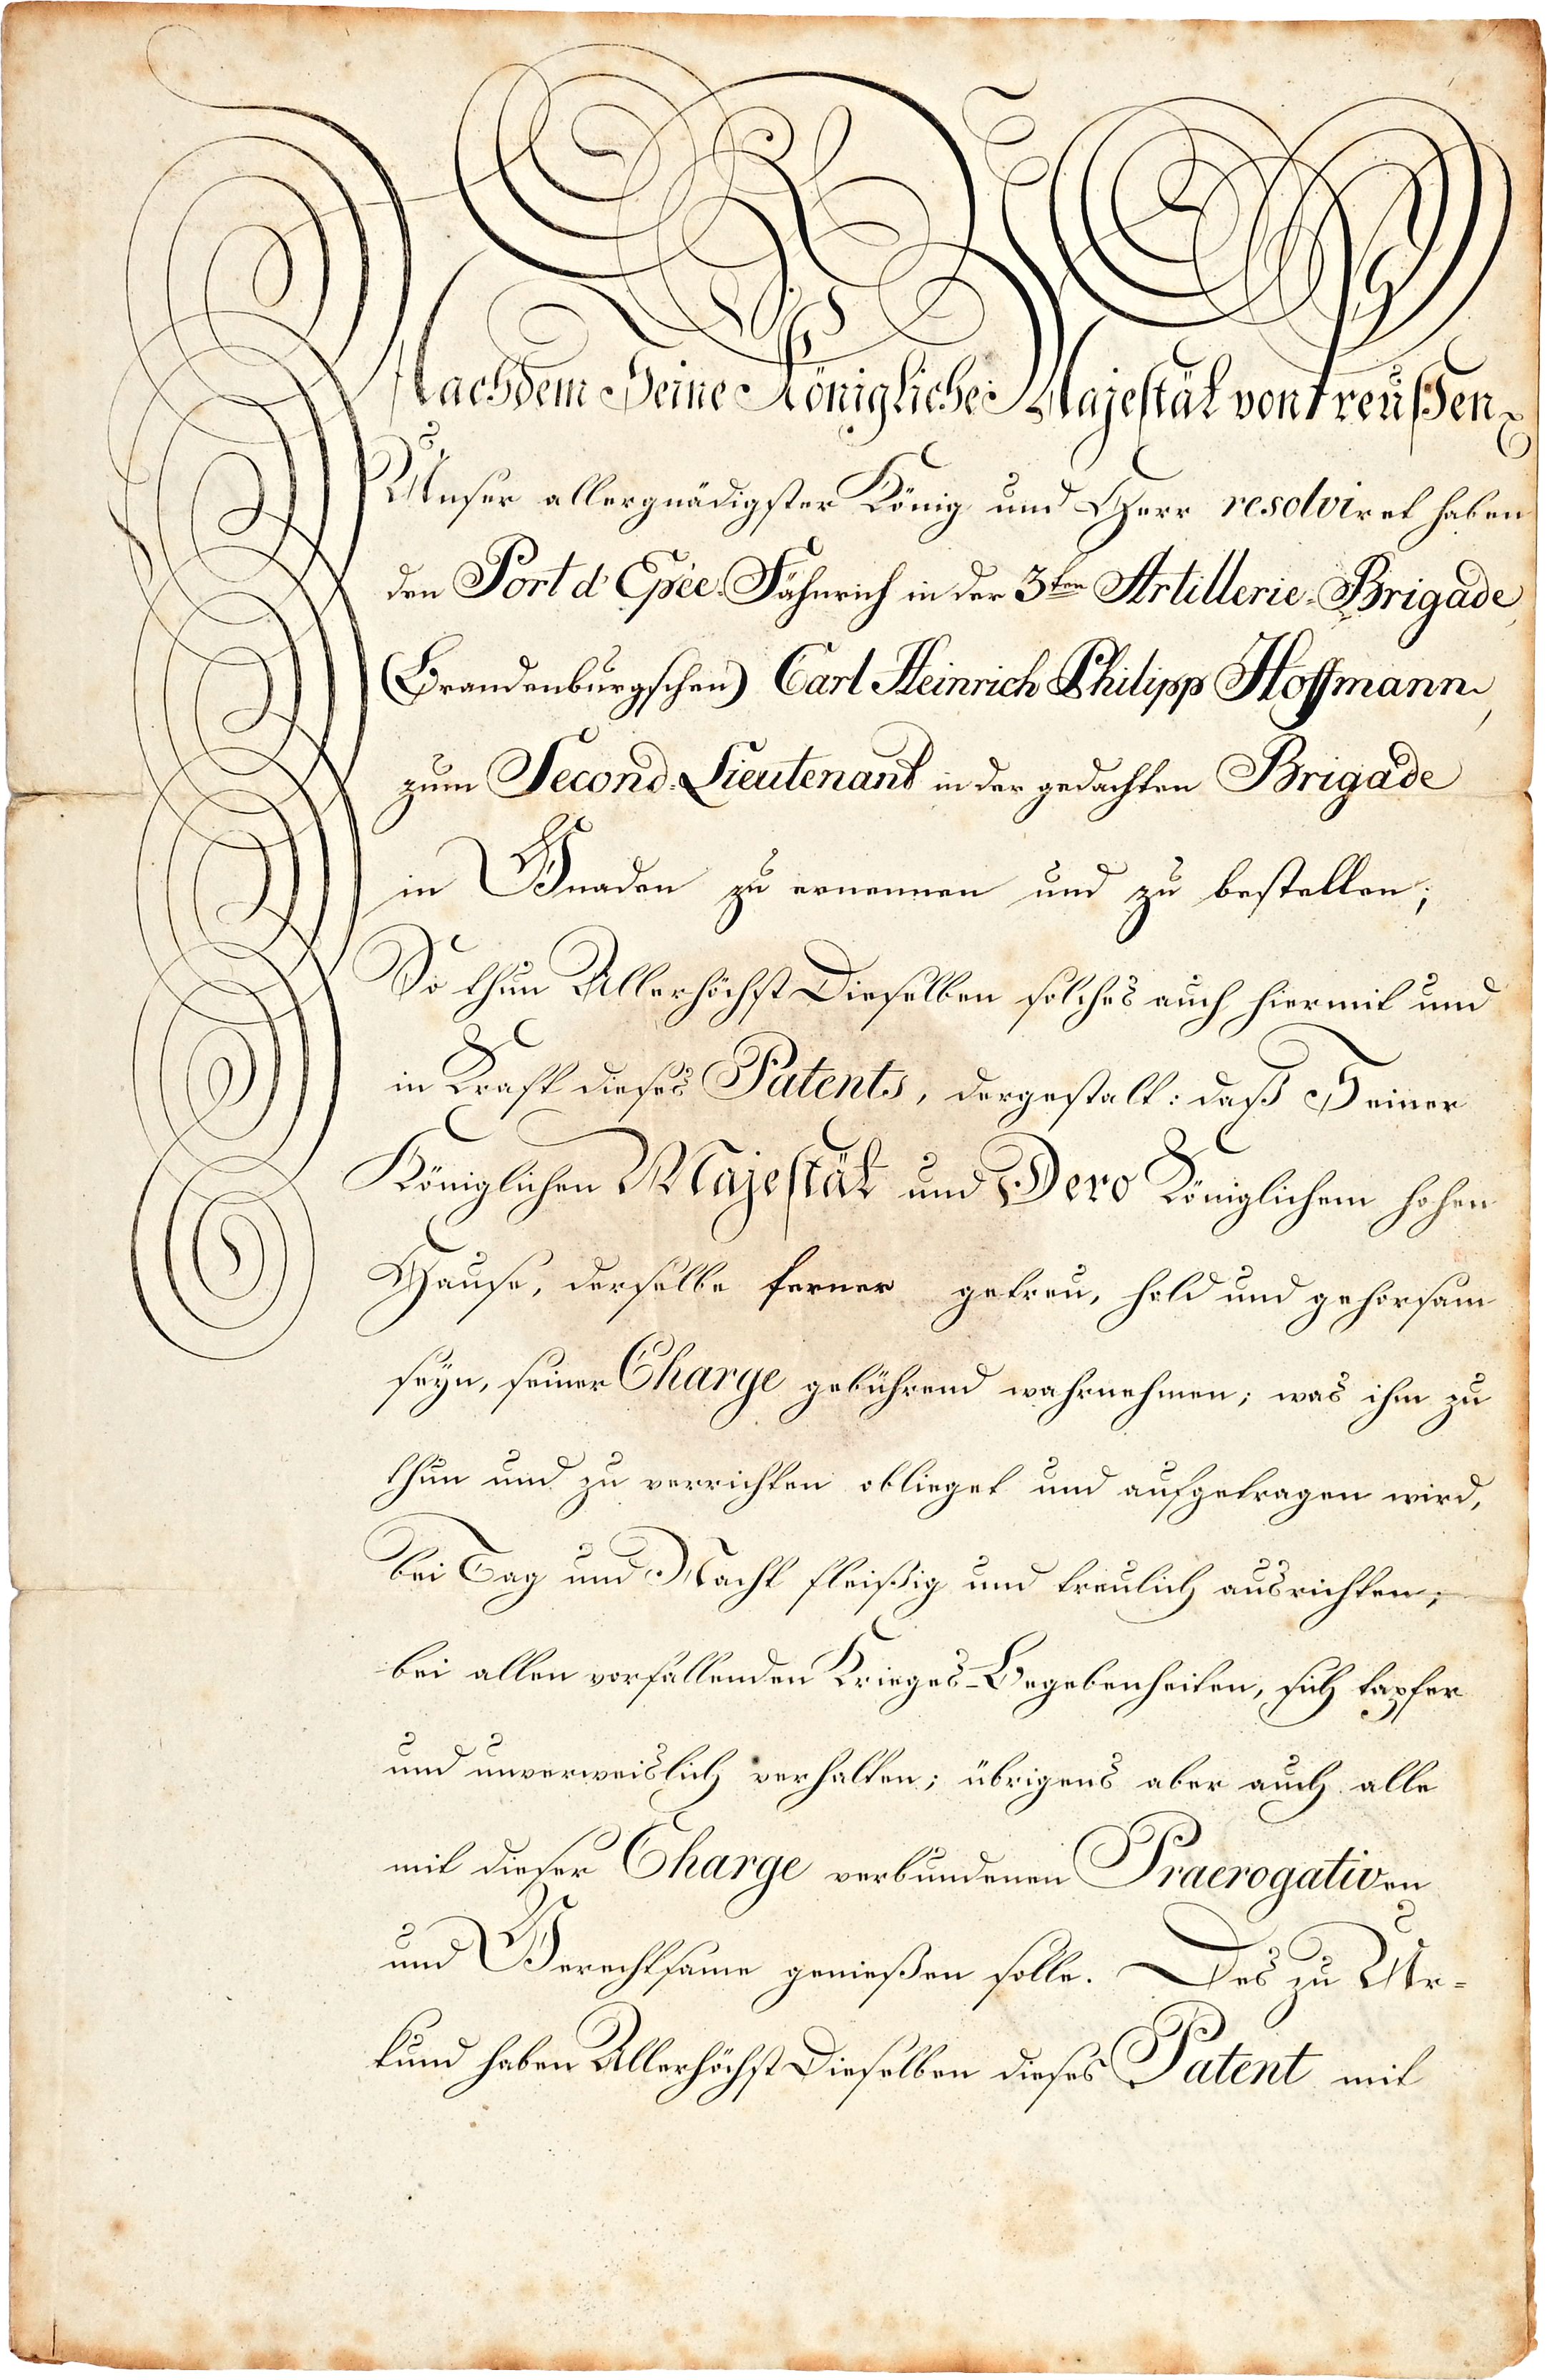 Nachdem Seine Königliche Majestät von Preußen
Unser allergnädigster König und Herr resolviret haben
den Port d'Epée-Fähnrich in der 3ten Artillerie-Brigade
(Brandenburgschen) Carl Heinrich Philipp Hoffmann,
zum Second-Lieutenant in der gedachten Brigade
in Gnaden zu ernennen und zu bestellen;
So thun Allerhöchst Dieselben solches auch hiermit und
in Kraft dieses Patents, dergestalt: daß Seiner
Königlichen Majestät und Dero Königlichem hohen
Hause, derselbe ferner getreu, hold und gehorsam
seyn, seiner Charge gebührend wahrnehmen; was ihm zu
thun und zu verrichten oblieget und aufgetragen wird,
bei Tag und Nacht fleißig und treulich ausrichten;
bei allen vorfallenden Krieges-Begebenheiten, sich tapfer
und unverweislich verhalten; übrigens aber auch alle
mit dieser Charge verbundenen Praerogativen
und Gerechtsame genießen solle. Des zu Ur-
kund haben Allerhöchst Dieselben dieses Patent mit